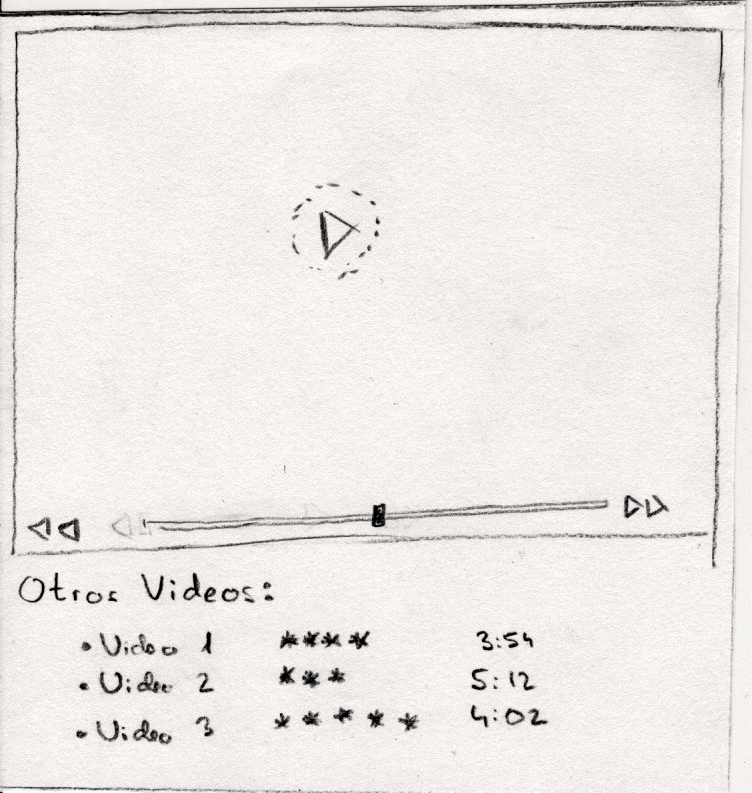 Otros Videos:
• Video 1 **** 3:54
• Video 2 *** 5:12
• Video 3 ***** 4:02